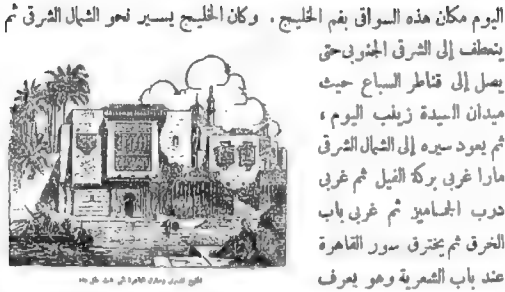 اليوم مكان هذه السواقى بفم الخليج . وكان الخليج يسير نحو الشمال الشرقى ثم
ينعطف إلى الشرقى الجنوبى حتى
يصل إلى قناطر السباع حيث
ميدان السيدة زينب اليوم ،
ثم يعود سيره إلى الشمال الشرقى
مارا غربى بركة الفيل ثم غربى
درب الجماميز ثم غربى باب
الخرق ثم يخترق سور القاهرة
عند باب الشعرية وهو يعرف